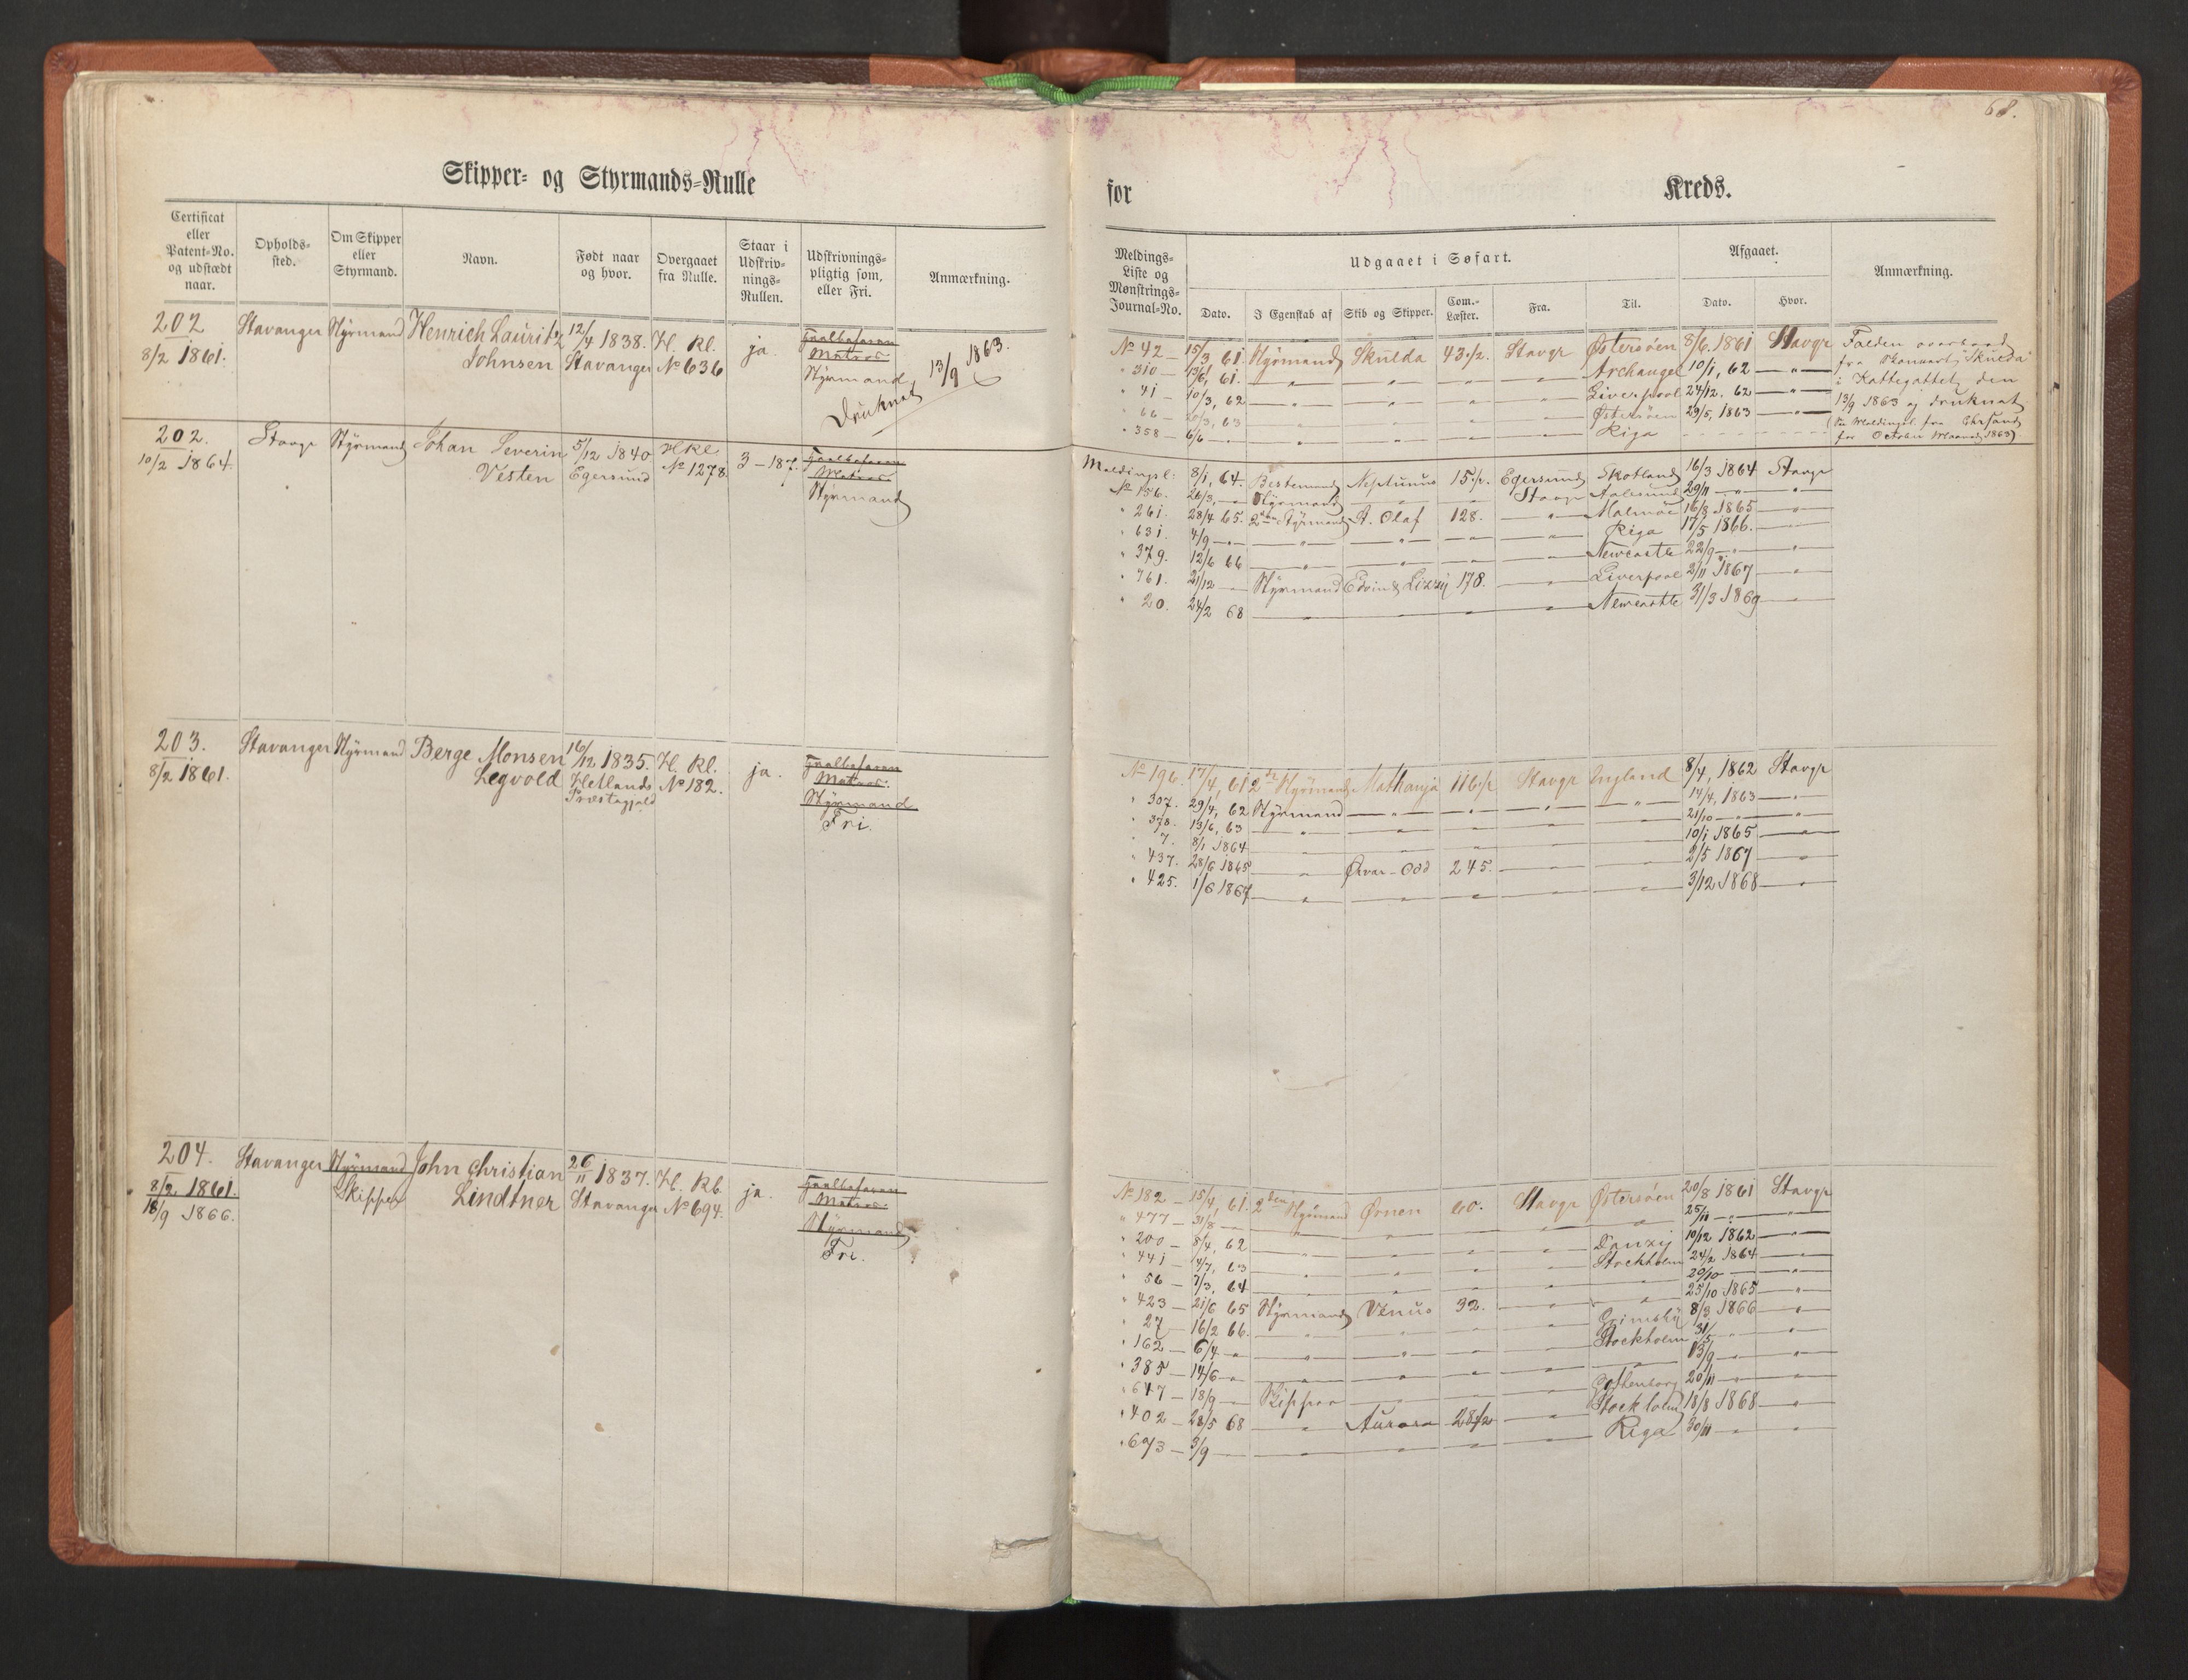 68.
Skipper- og Styrmands-Rulle
for Kreds.
Certificat eller Patent-No. og udstædt naar.
Opholds-sted.
Om Skipper eller Styrmand.
Navn.
Født naar og hvor.
Overgaaet fra Rulle.
Staar i Udskriv-nings-Rullen.
Udskrivnings-pligtig som, eller Fri.
Anmærkning.
Meldings-Liste og Mønstrings-Journal-No.
Udgaaet i Søfart.
Dato.
I Egenskab af
Skib og Skipper.
Com.-Læster.
Fra.
Til.
Afgaaet.
Dato.
Hvor.
Anmærkning.
202 Stavanger Styrmand Henrich Lauritz 12/4 1838. H. Kl. ja. Halvbefaren
8/2 1861. Johnsen Stavanger No 636 Matros
Styrmand
Druknet 13/9 1863.
No 42 — 15/3 61 Styrmand Skulda 43 1/2. Stavgr Østersøen 8/6. 1861 Stavgr
" 310 — 13/6, 61. — " — Archangel 10/1, 62 — " —
" 41 — 10/3, 62 — " — Liverpool 24/12. 62 — " —
" 66 — 20/3, 63 — " — Østersøen 29/5, 1863 — " —
" 358 — 6/6 — " — Riga
Falden overbord
fra Skonnert "Skulda"
i Kattegattet den
13/9 1863 og druknet
(Se Meldingsl. fra Chrsand
for October Maaned 1863).
202. Stavgr Styrmand Johan Severin 5/12 1840 H Kl. 3 — 187. Halvbefaren
10/2 1864. Vesten Egersund No 1278. Matros
Styrmand
Meldingsl. 8/1, 64. Bestemand Neptunus 15 1/2. Egersund Skotland 16/3 1864 Stavgr
No 156. 26/3, — " Styrmand — " — Stavgr Aalesund 29/11 — " — "
" 261. 28/4 65. 2den Styrmand St. Olaf 128. — " — Malmøe 16/8 1865 — " —
" 631. 4/9 — " — Riga 17/5 1866. —
" 379. 12/6 66 — " — Newcastle 22/9 — " — "
" 761. 21/12 — Styrmand Edvin & Lizzy 178. — Liverpool 2/11 1867 — "
" 20. 24/2 68 — " — Newcastle 31/3 1869 — "
203. Stavanger Styrmand Berge Monsen 16/12 1835. H. Kl. ja. Halvbefaren
8/2 1861. Legvold Hetlands No 182. Matros.
Præstegjeld Styrmand
Fri.
No 196. 17/4, 61 2n Styrmand Nathanja 116 1/2 Stavgr England 8/4, 1862 Stavgr
" 307. 29/4, 62 Styrmand — " — 14/4, 1863 — "
" 378. 13/6, 63 — " — 21/10 — " — "
" 7. 8/1 1864 — " — 10/1 1865 — "
" 437. 28/6 1865 — " Ørvar-Odd 245. — " — 2/5 1867 — "
" 425. 1/6 1867 — " — 3/12 1868 — "
204. Stavanger Styrmand John Christian 26/11 1837. H. Kl. ja. Halvbefaren
8/2 1861. Skipper Lindtner Stavanger No 694. Matros.
18/9 1866. Styrmand
Fri.
No 182 — 15/4, 61. 2den Styrmand Ørnen 60. Stavgr Østersøen 20/8 1861 Stavgr
" 477 — 31/8 — " — 25/11 — " — "
" 200 — 8/4, 62 — " — Danzig 10/12 1862 — "
" 441 — 4/7, 63 — " — Stockholm 24/2 1864 — "
" 56 — 7/3, 64 — " — 20/10 — "
" 423 — 21/6 65 Styrmand Venus 32. — " — 25/10 1865 — "
" 27 — 16/2 66. — " — Grimsby 8/3 1866 — "
" 162 — 6/4 — " — Stockholm 31/5 — "
" 385 — 14/6 — " — 13/9 — "
" 647 — 18/9 — Skipper — Gothenborg 20/11 — " — "
" 402 — 28/5 68 — " Aurora 28 1/2 — Stockholm 18/8 1868 — "
" 693 — 3/9 — " — Riga 30/11 — " — "